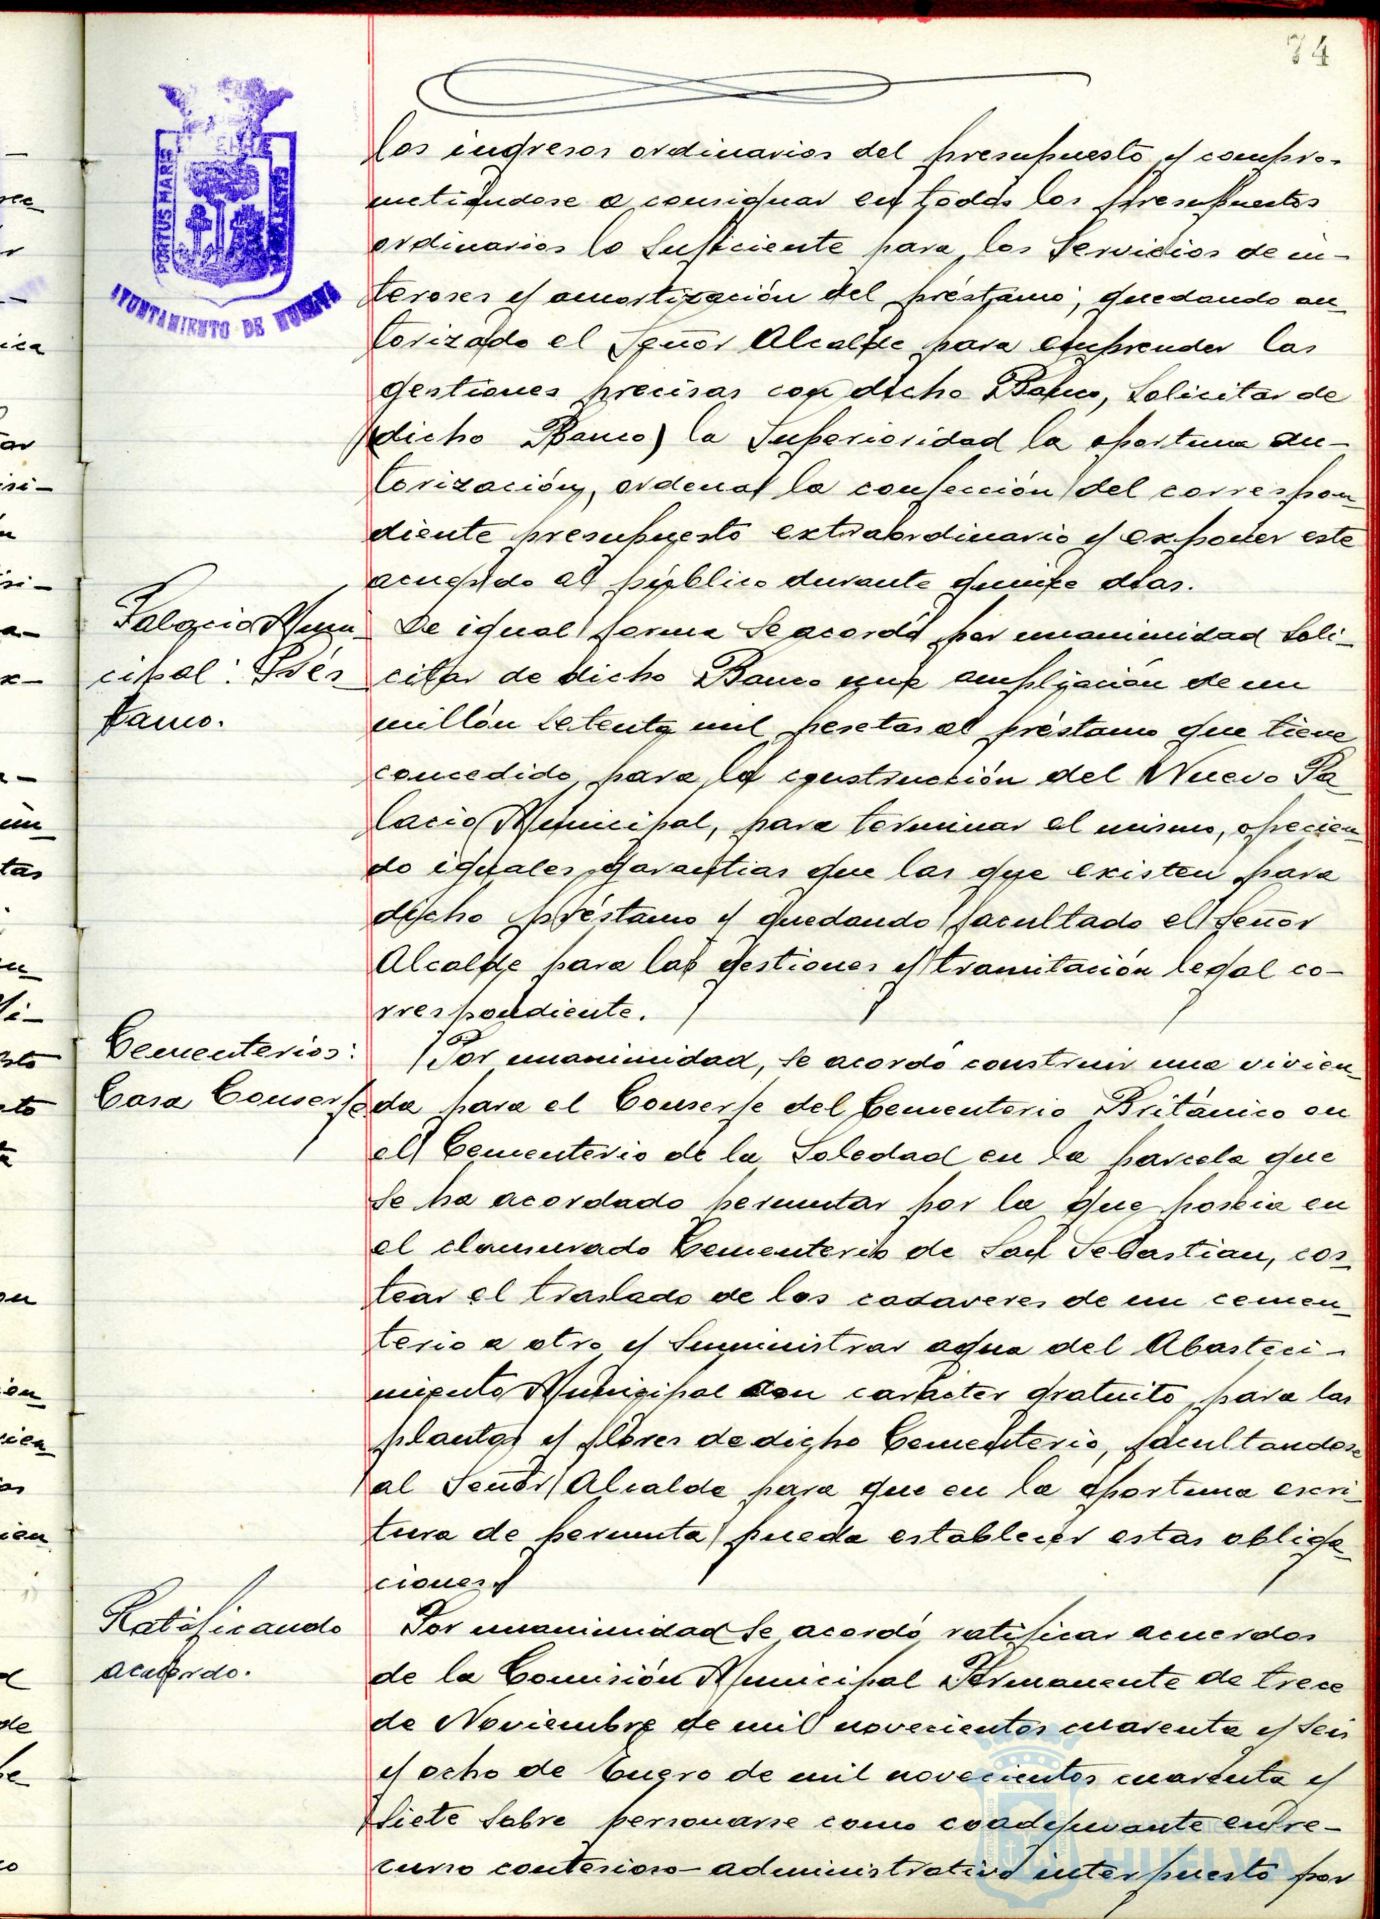 74
PORTUS MARIS ET TERRE CUSTODIA
AYUNTAMIENTO DE HUELVA
los ingresos ordinarios del presupuesto y compro-
metiéndose a consignar en todos los presupuestos
ordinarios lo suficiente para los Servicios de in-
tereses y amortización del préstamo; quedando au-
torizado el Señor Alcalde para emprender las
gestiones precisas con dicho Banco, Solicitar de
(dicho Banco) la Superioridad la oportuna au-
torización, ordenar la confección del correspon-
diente presupuesto extraordinario y exponer este
acuerdo al público durante quince días.
Palacio Muni-
cipal: Prés-
tamo.
De igual forma se acordó por unanimidad Soli-
citar de dicho Banco una ampliación de un
millón setenta mil pesetas al préstamo que tiene
concedido para la construcción del Nuevo Pa-
lacio Municipal, para terminar el mismo, ofrecien-
do iguales garantias que las que existen para
dicho préstamo y quedando facultado el Señor
Alcalde para las gestiones y tramitación legal co-
rrespondiente.
Cementerios:
Casa Conserje
Por unanimidad, se acordó construir una vivien-
da para el Conserje del Cementerio Británico en
el Cementerio de la Soledad en la parcela que
se ha acordado permutar por la que poseia en
el clausurado Cementerio de San Sebastian, cos-
tear el traslado de los cadaveres de un cemen-
terio a otro y Suministrar agua del Abasteci-
miento Municipal con carácter gratuito para las
plantas y flores de dicho Cementerio, facultandose
al Señor Alcalde para que en la oportuna escri-
tura de permuta pueda establecer estas obliga-
ciones.
Ratificando
acuerdo.
Por unanimidad se acordó ratificar acuerdos
de la Comisión Municipal Permanente de trece
de Noviembre de mil novecientos cuarenta y seis
y ocho de Enero de mil novecientos cuarenta y
siete sobre personarse como coadyuvante en re-
curso contesioso-administrativo interpuesto por
HUELVA